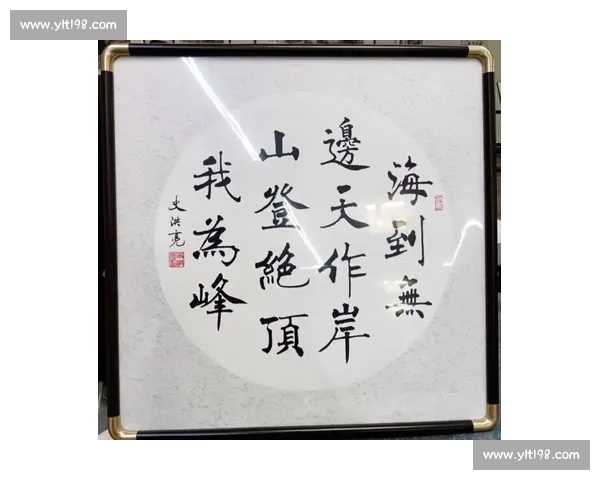 www.ylt198.com
海到無
邊天作岸
山登絕頂
我為峰
史洪亮
www.ylt198.com